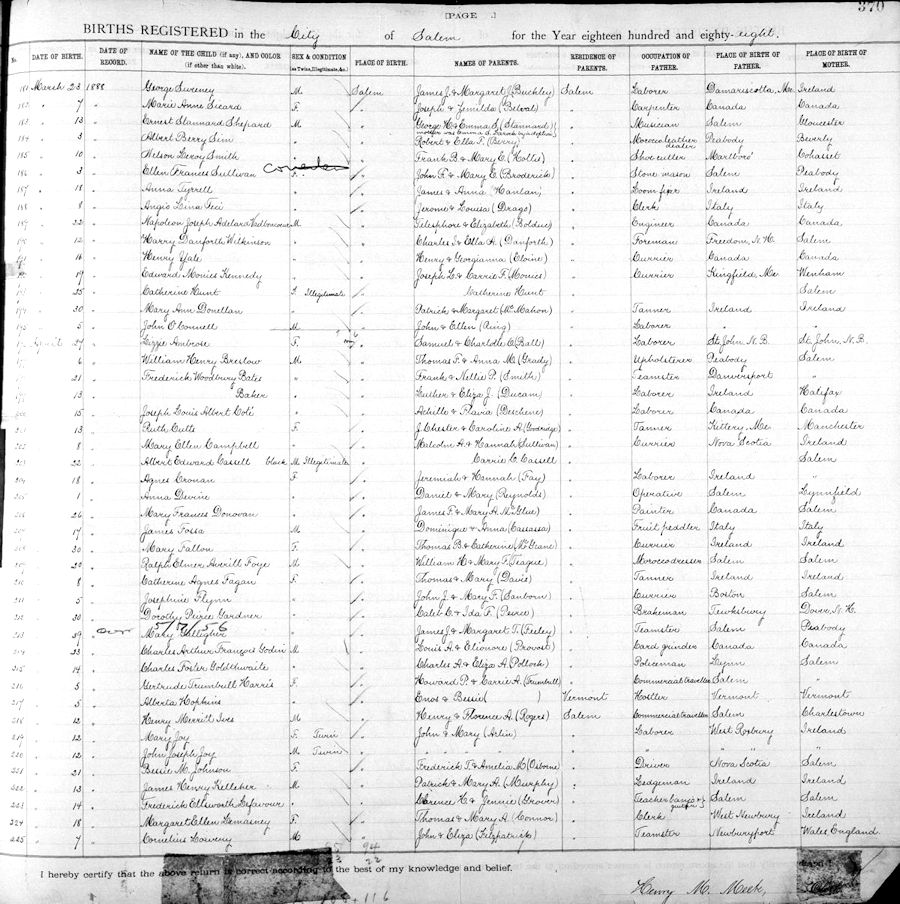 370
[PAGE .]
BIRTHS REGISTERED in the City of Salem for the Year eighteen hundred and eighty-eight.
No. DATE OF BIRTH. DATE OF RECORD. NAME OF THE CHILD (if any), AND COLOR (if other than white). SEX & CONDITION (as Twins, Illegitimate, &c.) PLACE OF BIRTH. NAMES OF PARENTS. RESIDENCE OF PARENTS. OCCUPATION OF FATHER. PLACE OF BIRTH OF FATHER. PLACE OF BIRTH OF MOTHER.
181 March 23 1888 George Sweney M Salem James J. & Margaret J. (Buckley) Salem Laborer Damariscotta, Me. Ireland
182 " 7 " Marie Anne Sicard F. " Joseph & Zenilda (Belval) " Carpenter Canada Canada
183 " 13 " Ernest Stannard Shepard M " George H. & Emma S. (Stannard) " Musician Salem Gloucester
184 " 3 " Albert Berry Sim " " Robert & Ella F. (Berry) " Morocco leather Peabody Beverly
185 " 10 " Nelson Leroy Smith " " Frank B. & Mary E. (Hollis) " Shoe cutter Marlboro' Cohasset
186 " 3 " Ellen Frances Sullivan F. " John F. & Mary E. (Broderick) " Stone mason Salem Peabody
187 " 18 " Anna Tyrrell " " James & Anna (Hanlan) " Loom fixer Ireland Ireland
188 " 8 " Angio Lina Feci " " Jerome & Louisa (Drago) " Clerk Italy Italy
189 " 22 " Napoleon Joseph Adelard M " Telesphore & Elizabeth (Bolduc) " Engineer Canada Canada
190 " 12 " Harry Danforth Wilkinson " " Charles I. & Ella A. (Danforth) " Foreman Freedom, N.H. Salem
191 " 16 " Henry Yale " " Henry & Georgianna (Cloine) " Currier Canada Canada
192 " 19 " Edward Monies Kennedy " " Joseph L. & Carrie F. (Monies) " Currier Kingfield, Me. Wenham
193 " 25 " Catherine Hunt F Illegitimate " Catherine Hunt " Salem
194 " 30 " Mary Ann Donellan " " Patrick & Margaret (McMahon) " Tanner Ireland Ireland
195 " 5 " John O'Connell M " John & Ellen (Ring) " Laborer " "
196 April 27 " Lizzie Ambrose F. " Samuel & Charlotte C. (Ball) " Laborer St. John, N.B. St. John, N.B.
197 " 6 " William Henry Breslow M " Thomas F. & Anna M. (Grady) " Upholsterer Peabody Salem
198 " 21 " Frederick Woodbury Bates " " Frank & Nellie P. (Smith) " Teamster Danversport "
199 " 13 " Baker " " Luther & Eliza J. (Ducam) " Laborer Ireland Halifax
200 " 15 " Joseph Louis Albert Coté " " Achille & Flavia (Deschene) " Laborer Canada Canada
201 " 13 " Ruth Cutts F. " J. Chester & Caroline A. (Goodridge) " Tanner Kittery, Me. Manchester
202 " 8 " Mary Ellen Campbell " " Malcolm A. & Hannah (Sullivan) " Currier Nova Scotia Ireland
203 " 22 " Albert Edward Cassell black M Illegitimate " Carrie L. Cassell " Salem
204 " 18 " Agnes Cronan F. " Jeremiah & Hannah (Fay) " Laborer Ireland "
205 " 1 " Anna Devine " " Daniel & Mary (Reynolds) " Operative Salem Lynnfield
206 " 26 " Mary Frances Donovan " " James F. & Mary A. McGlue) " Painter Canada Salem
207 " 17 " James Fossa M " Dominique & Anna (Cassassa) " Fruit peddler Italy Italy
208 " 30 " Mary Fallon F. " Thomas B. & Catherine (McGrane) " Currier Ireland Ireland
209 " 20 " Ralph Elmer Averill Foye M " William H. & Mary F. (Teague) " Moroccodresser Salem Salem
210 " 8 " Catherine Agnes Fagan F. " Thomas & Mary (Davis) " Tanner Ireland Ireland
211 " 5 " Josephine Flynn " " John J. & Mary F. (Sanborn) " Currier Boston Salem
212 " 30 " Dorothy Peirce Gardner " " Caleb C. & Ida F. (Peirce) " Brakeman Tewksbury Dover, N.H.
5/17/56
213 " 29 over Mary Gallagher " " James J. & Margaret T. (Feeley) " Teamster Salem Peabody
214 " 23 " Charles Arthur François Godin M " Louis A. & Elionore (Provost) " Card grinder Canada Canada
215 " 14 " Charles Foster Goldthwaite " " Charles A. & Eliza A. (Pollock) " Policeman Lynn Salem
216 " 5 " Gertrude Trumbull Harris F. " Howard P. & Carrie A. (Trumbull) " Commercial traveller Salem "
217 " 5 " Alberta Hopkins " " Enos & Bessie ( ) Vermont Hostler Vermont Vermont
218 " 12 " Henry Merrith Ives M " Henry & Florence A. (Rogers) Salem Commercial traveller Salem Charlestown
219 " 12 " Mary Joy F. Twin " John & Mary (Arlin) " Laborer West Roxbury Ireland
220 " 12 " John Joseph Joy M Twin " " " " " " " " "
221 " 21 " Bessie M. Johnson F. " Frederick T. & Amelia M. (Osborne) " Driver Nova Scotia Salem
222 " 13 " James Henry Kelleher M " Patrick & Mary A. (Murphy) " Ledgeman Ireland Ireland
223 " 14 " Frederick Ellsworth Lefavour " " Clarence H. & Jennie (Grover) " Teacher banjo & guitar Salem Salem
224 " 18 " Margaret Ellen Lemasney F. " Thomas & Mary A. (Connor) " Clerk West Newbury Ireland
225 " 7 " Cornelius Lowery M " John & Eliza (Fitzpatrick) " Teamster Newburyport Wales England
94
22
I hereby certify that the above return is correct according to the best of my knowledge and belief.
116
Henry M. Meek,